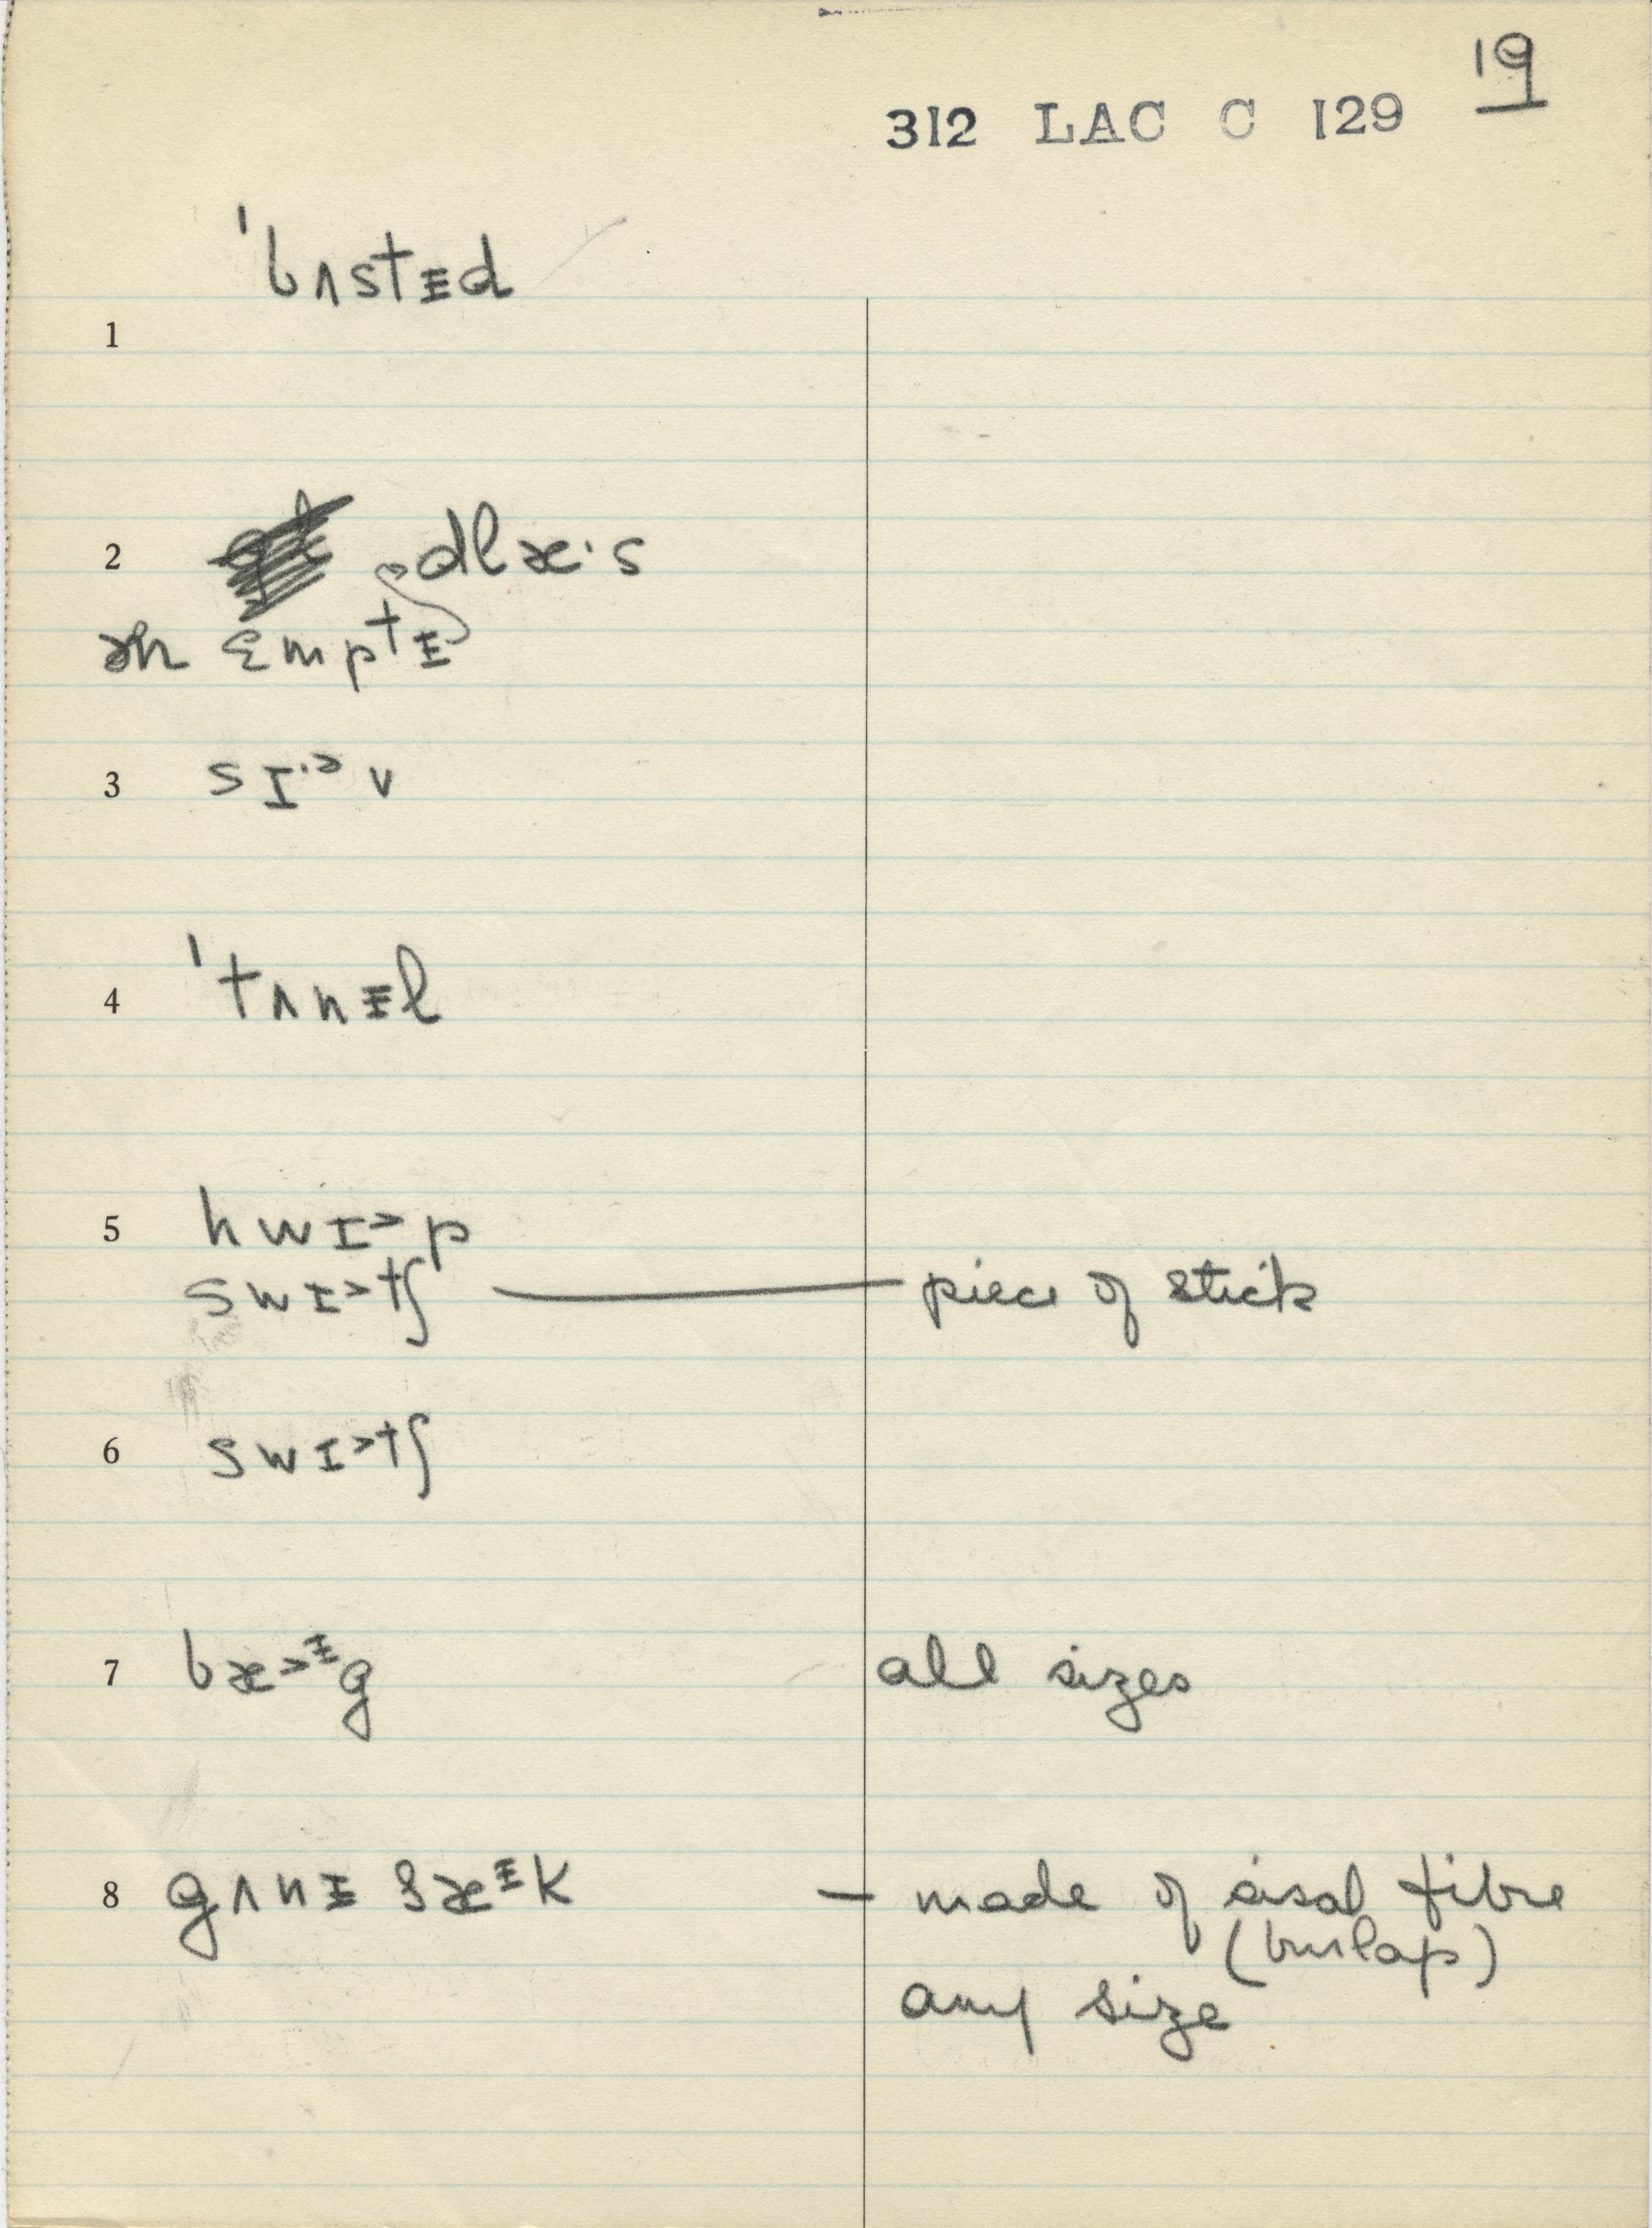 19
312 LAC C 129
ˈbʌstᵻd
1
2 dlæ·s
ən ɛmptᵻ
3 sɪ·ᵊv
4 ˈtʌnᵻl
5 hwɪ˃p
swɪ˃tʃ — piece of stick
6 swɪ˃tʃ
7 bæ˃ᵻg all sizes
8 gʌnᵻ sæᵻk — made of sisal fibre
(burlap)
any size